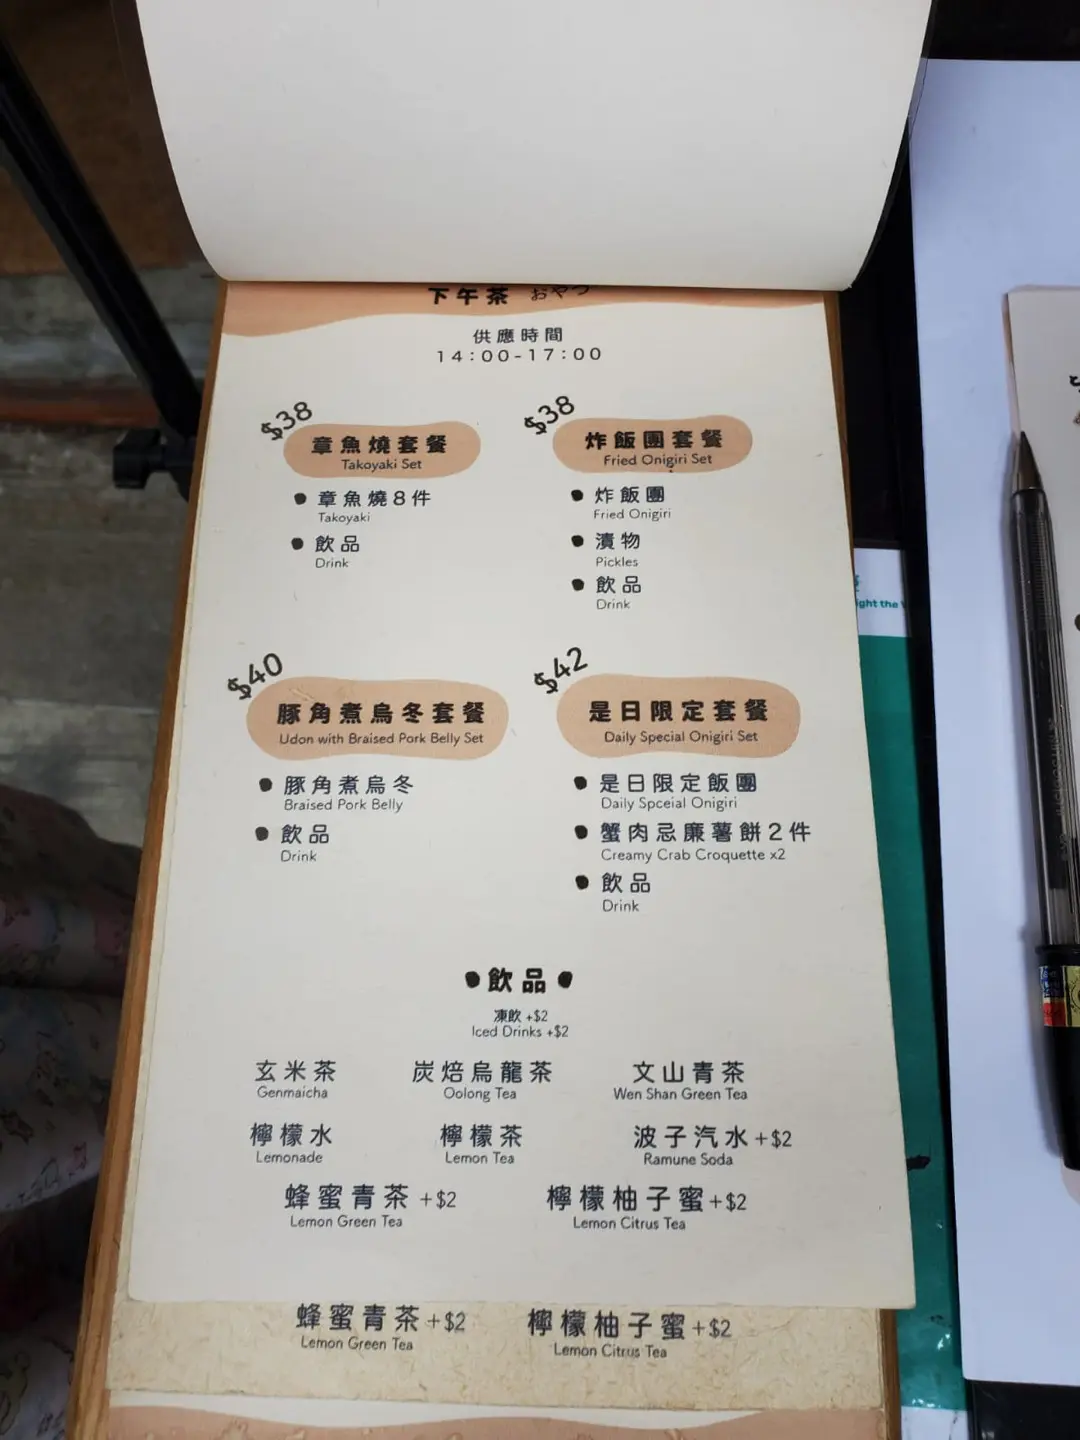 下午茶 おやつ
供應時間
14:00-17:00
$38
章魚燒套餐
Takoyaki Set
章魚燒8件
Takoyaki
飲品
Drink
$38
炸飯團套餐
Fried Onigiri Set
炸飯團
Fried Onigiri
漬物
Pickles
飲品
Drink
$40
豚角煮烏冬套餐
Udon with Braised Pork Belly Set
豚角煮烏冬
Braised Pork Belly
飲品
Drink
$42
是日限定套餐
Daily Special Onigiri Set
是日限定飯團
Daily Spceial Onigiri
蟹肉忌廉薯餅2件
Creamy Crab Croquette x2
飲品
Drink
飲品
凍飲 +$2
Iced Drinks +$2
玄米茶 炭焙烏龍茶 文山青茶
Genmaicha Oolong Tea Wen Shan Green Tea
檸檬水 檸檬茶 波子汽水+$2
Lemonade Lemon Tea Ramune Soda
蜂蜜青茶 +$2 檸檬柚子蜜+$2
Lemon Green Tea Lemon Citrus Tea
蜂蜜青茶+$2 檸檬柚子蜜+$2
Lemon Green Tea Lemon Citrus Tea